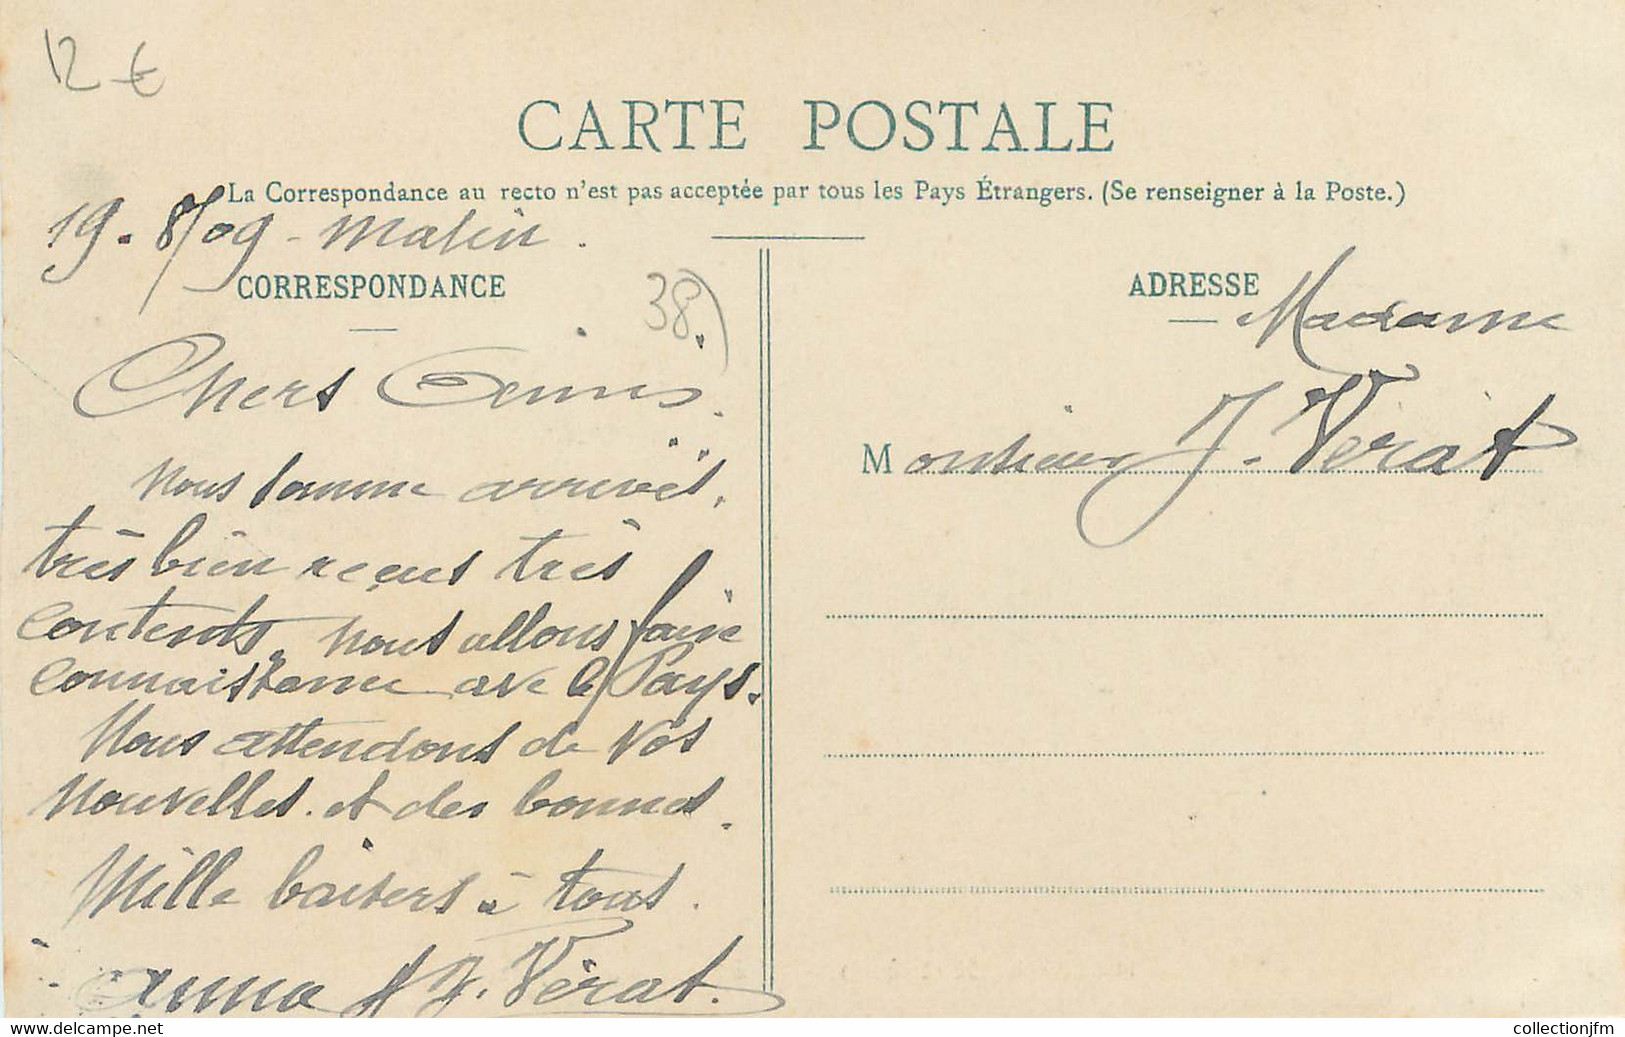 12 €
CARTE POSTALE
La Correspondance au recto n'est pas acceptée par tous les Pays Étrangers. (Se renseigner à la Poste.)
19. 8/09 - Matin.
CORRESPONDANCE
38.)
Chers Amis.
Nous somme arrivés,
très bien reçus très
contents. Nous allons faire
connaissance ave le Pays.
Nous attendons de Vos
Nouvelles. et des bonnes.
Mille baisers à tous.
Anna et J. Vérat.
ADRESSE
Madame
Monsieur J. Vérat
www.delcampe.net
collectionjfm